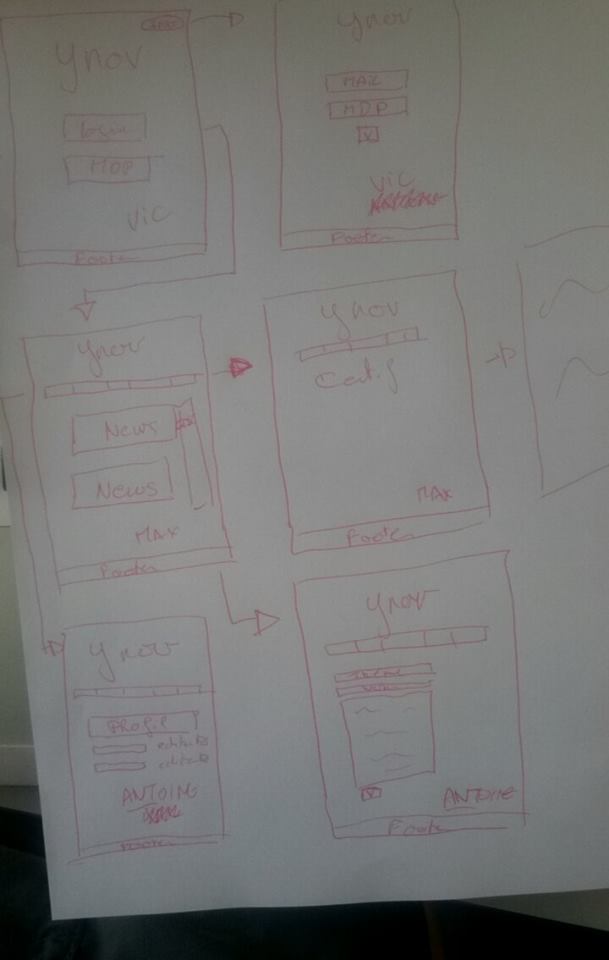 ynov
login
MDP
VIC
Footer
ynov
MAIL
MDP
VIC
Footer
ynov
News
News
MAX
Footer
ynov
Certif
MAX
Footer
ynov
Profil
ANTOINE
Footer
ynov
ANTOINE
Footer